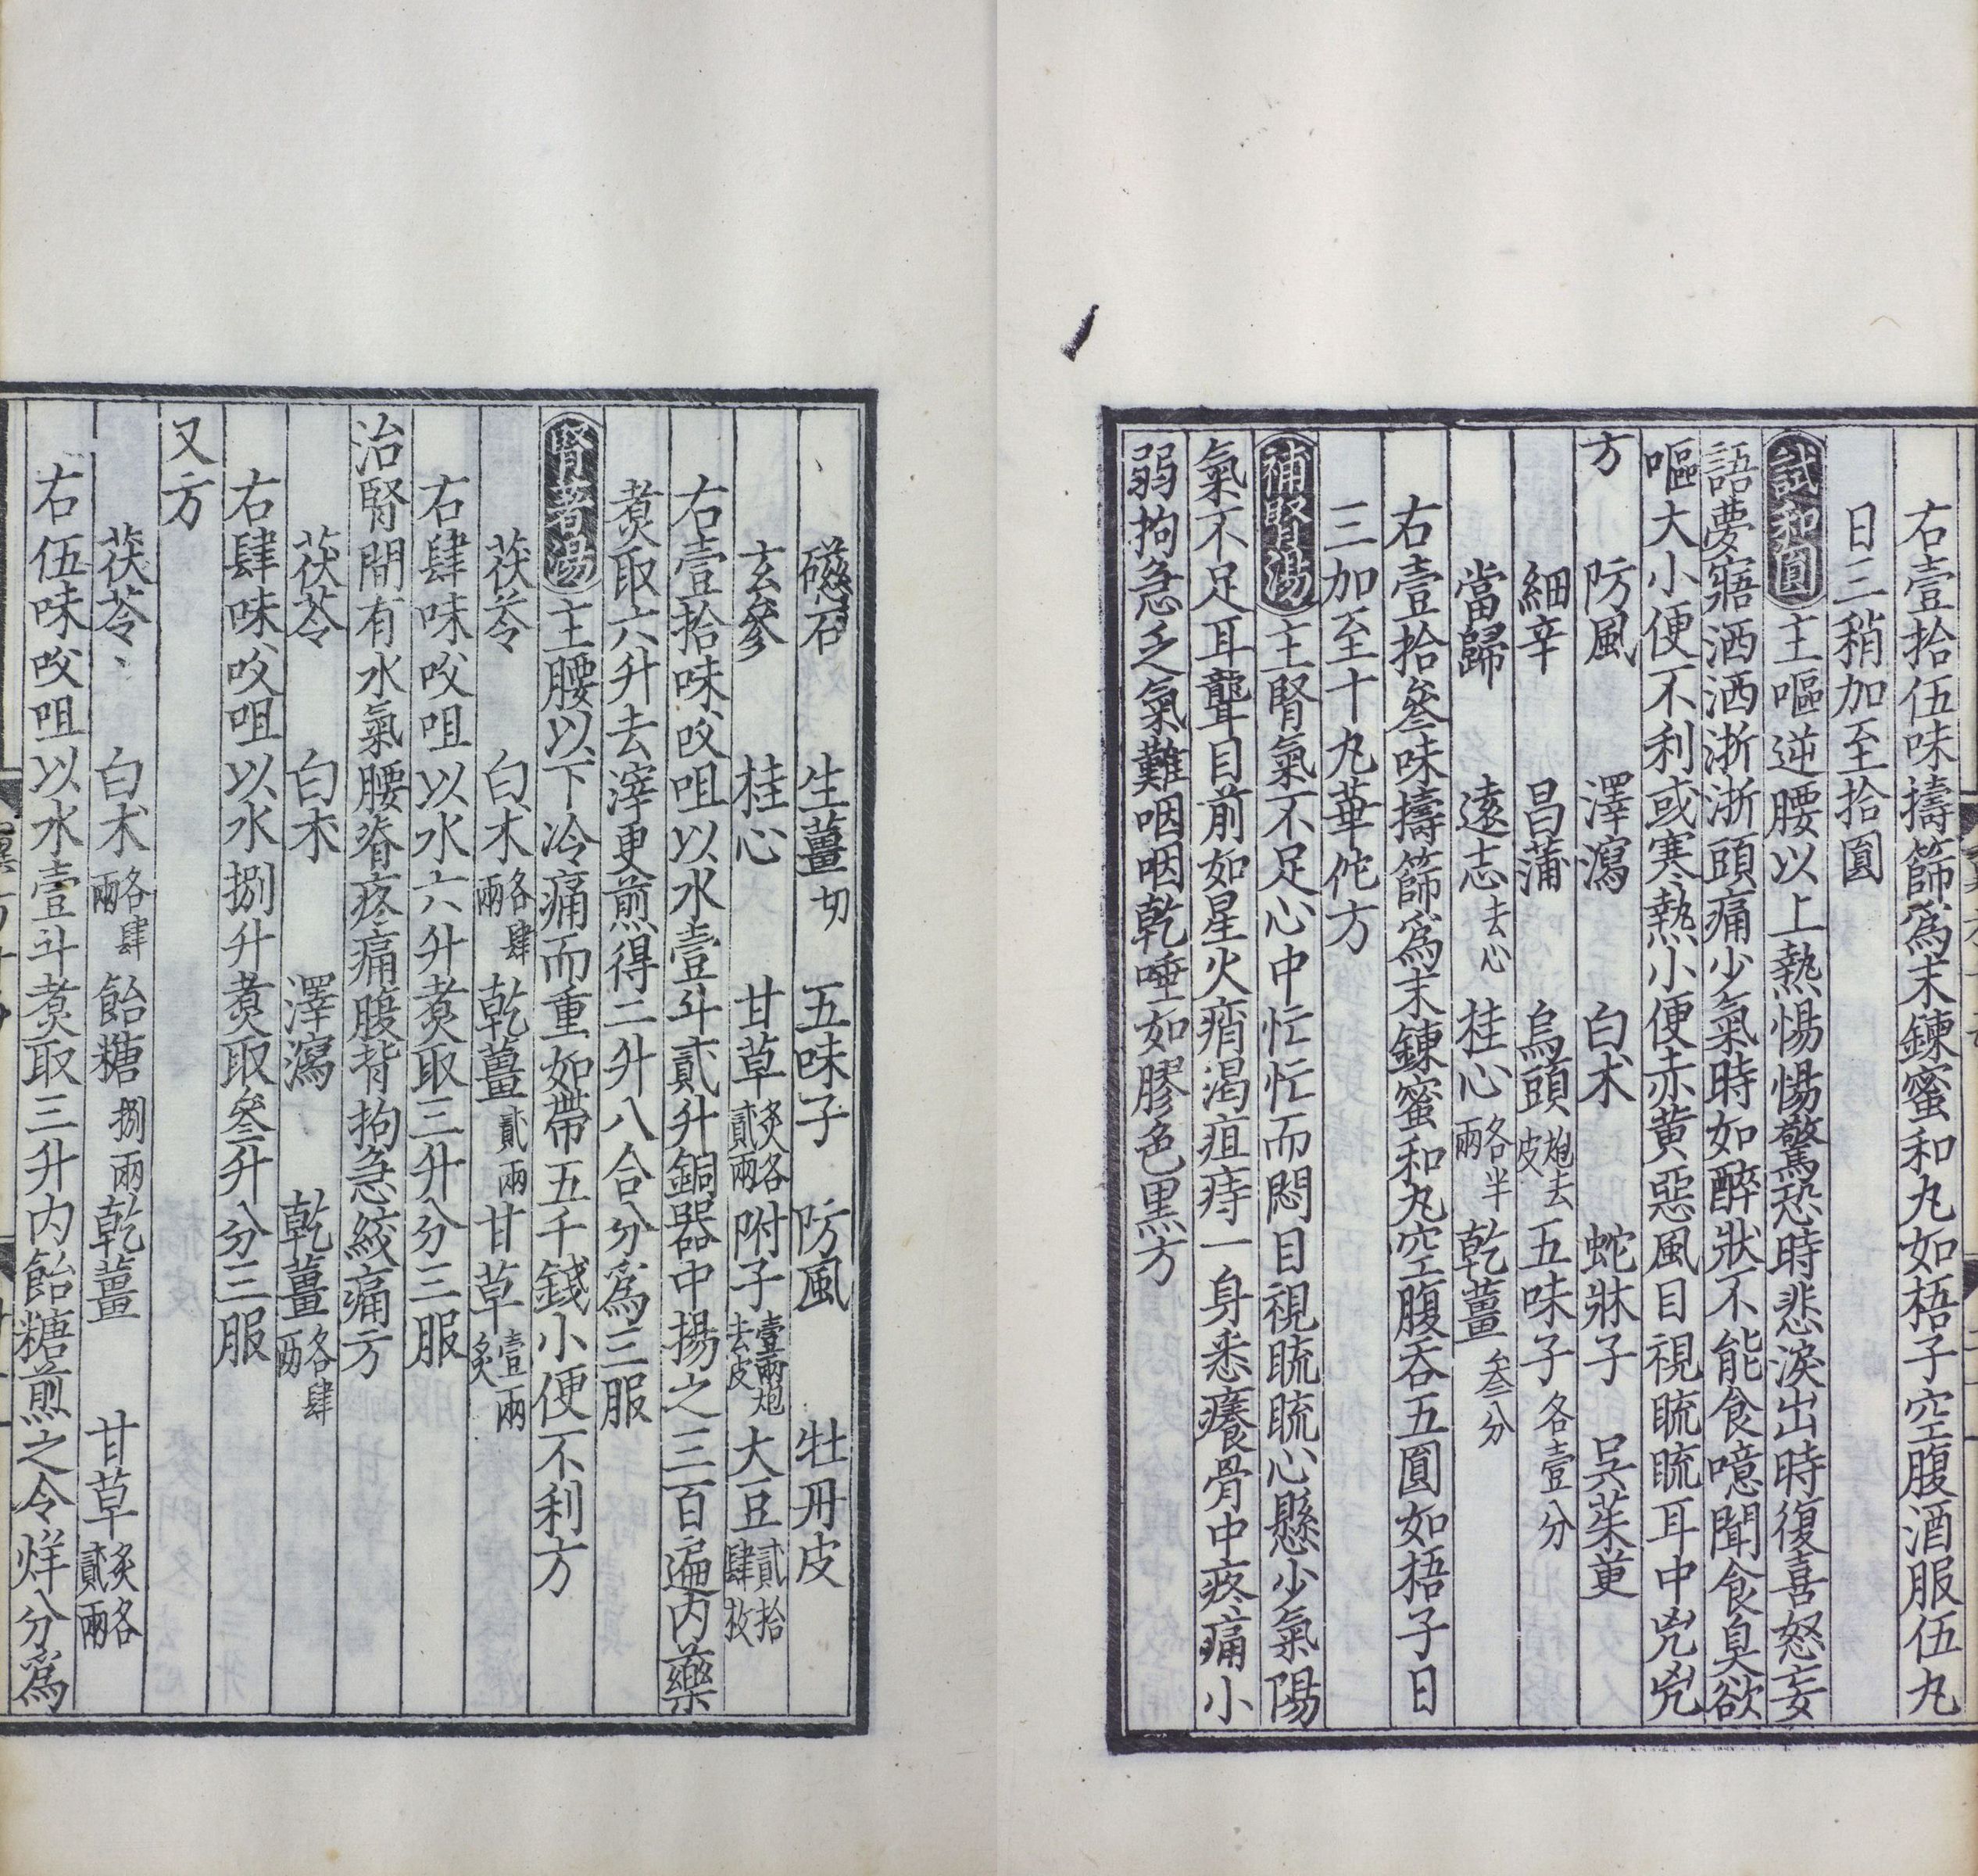 右壹拾伍味擣篩爲末鍊蜜和丸如梧子空腹酒服伍丸
日三稍加至拾圓
試和圓主嘔逆腰以上熱惕惕驚恐時悲淚出時復喜怒妄
語夢寤洒洒淅淅頭痛少氣時如醉狀不能食噫聞食臭欲
嘔大小便不利或寒熱小便赤黃惡風目視䀮䀮耳中兇兇
方　防風　澤瀉　白朮　蛇牀子　吳茱萸
細辛　昌蒲　烏頭炮去皮　五味子各壹分
當歸　遠志去心　桂心各半兩　乾薑叁分
右壹拾叁味擣篩爲末鍊蜜和丸空腹吞五圓如梧子日
三加至十丸華佗方
補腎湯主腎氣不足心中忙忙而悶目視䀮䀮心懸少氣陽
氣不足耳聾目前如星火痟渴疽痔一身悉癢骨中疼痛小
弱拘急乏氣難咽咽乾唾如膠色黑方
磁石　生薑切　五味子　防風　牡丹皮
玄參　桂心　甘草炙各貳兩　附子壹兩炮去皮　大豆貳拾肆枚
右壹拾味㕮咀以水壹斗貳升銅器中揚之三百遍內藥
煑取六升去滓更煎得二升八合分爲三服
腎著湯主腰以下冷痛而重如帶五千錢小便不利方
茯苓　白朮各肆兩　乾薑貳兩　甘草壹兩炙
右肆味㕮咀以水六升煑取三升分三服
治腎間有水氣腰脊疼痛腹背拘急絞痛方
茯苓　白朮　澤瀉　乾薑各肆兩
右肆味㕮咀以水捌升煑取叁升分三服
又方
茯苓　白朮各肆兩　飴糖捌兩　乾薑　甘草炙各貳兩
右伍味㕮咀以水壹斗煑取三升內飴糖煎之令烊分爲